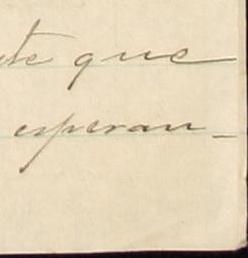 que
esperan_